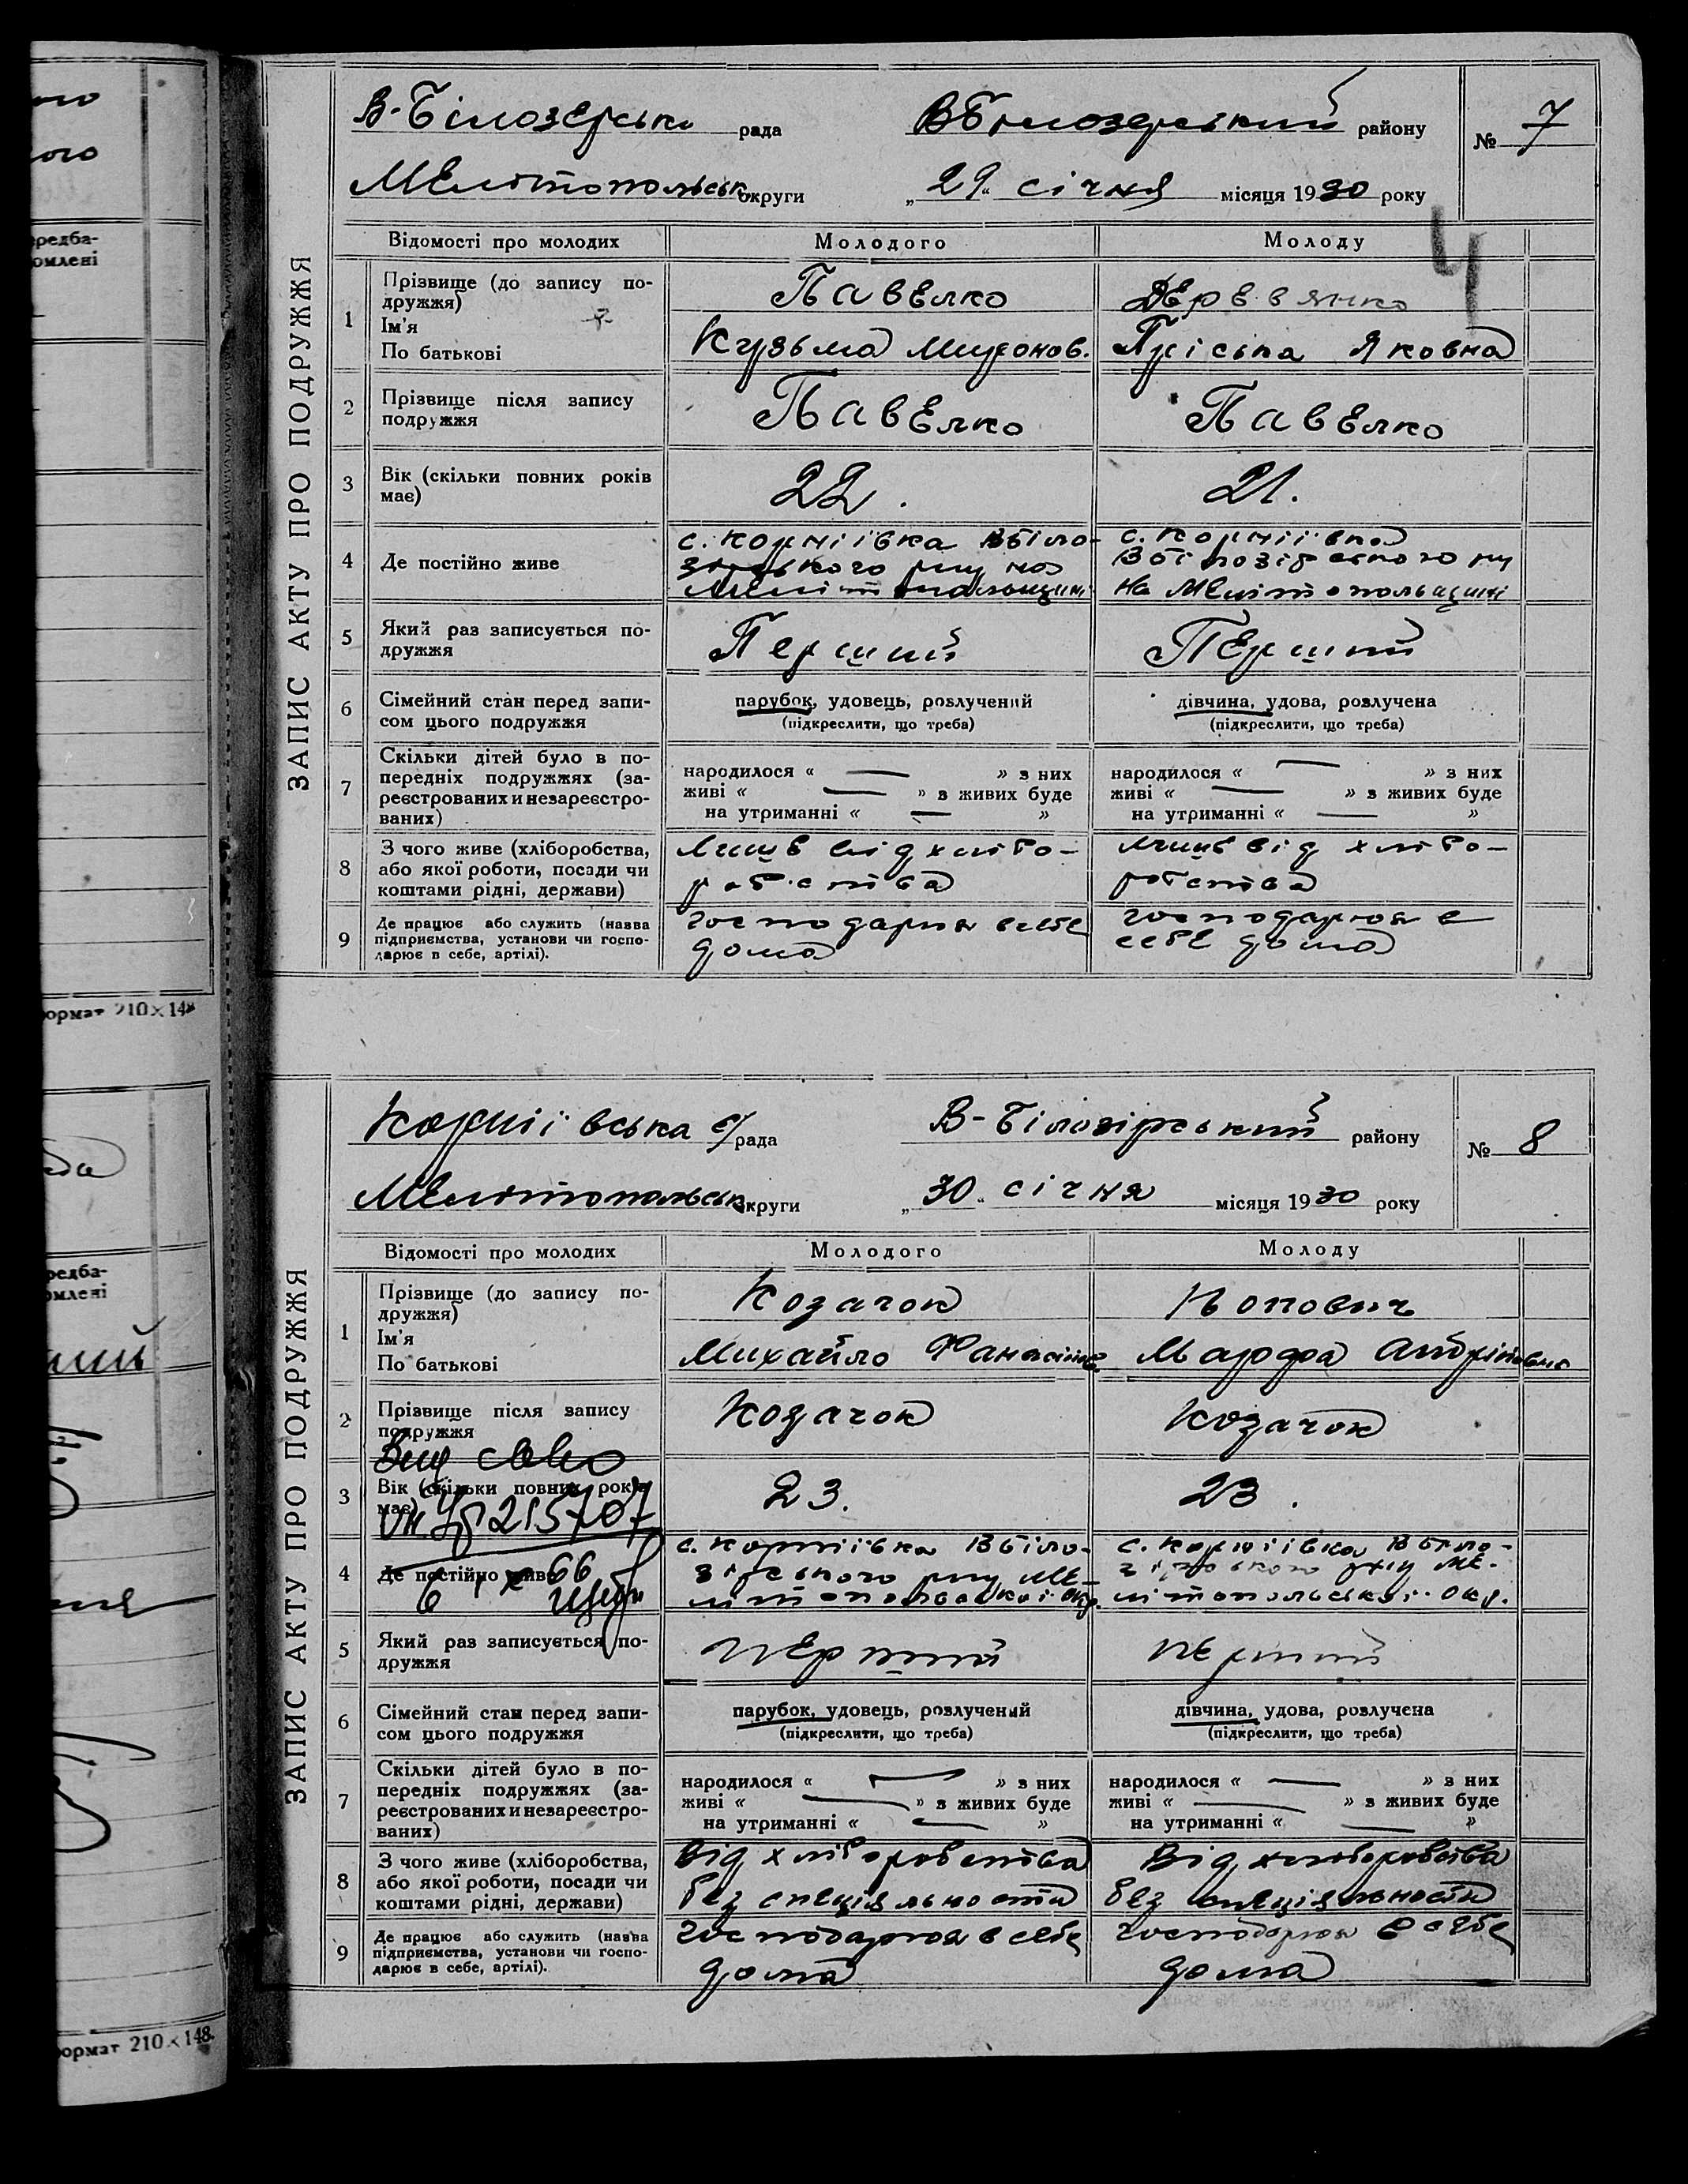 ЗАПИС АКТУ ПРО ПОДРУЖЖЯ
В-Білозерська рада ВБілозерський району № 7
Мелітопольськ округи „29" січня місяця 1930 року
4
Відомості про молодих Молодого Молоду
1 Прізвище (до запису подружжя) Павелко Деревянко
Ім'я
По батькові Кузьма Миронов. Пріська Яковна
2 Прізвище після запису подружжя Павелко Павелко
3 Вік (скільки повних років має) 22. 21.
4 Де постійно живе
с. Корніївка Вбіло-
зерського р-ну на
Мелітопольщині
с. Корніївка
Вбілозірського р-ну
на Мелітопольщині
5 Який раз записується подружжя Перший Перший
6 Сімейний стан перед записом цього подружжя
парубок, удовець, розлучений
(підкреслити, що треба)
дівчина, удова, розлучена
(підкреслити, що треба)
7 Скільки дітей було в попередніх подружжях (зареєстрованих и незареєстрованих)
народилося « — » з них
живі « — » з живих буде
на утриманні « — »
народилося « — » з них
живі « — » з живих буде
на утриманні « — »
8 З чого живе (хліборобства, або якої роботи, посади чи коштами рідні, держави)
від хлібо-
робства
від хлібо-
робства
9 Де працює або служить (назва підприємства, установи чи господарює в себе, артілі).
господарює в себе
дома
господарює в
себе дома
ормат 210×148
ЗАПИС АКТУ ПРО ПОДРУЖЖЯ
Корніївська с/рада В-Білозірський району № 8
Мелітопольськ округи „30" січня місяця 1930 року
Відомості про молодих Молодого Молоду
1 Прізвище (до запису подружжя) Козачок Попович
Ім'я
По батькові Михайло Марфа
2 Прізвище після запису подружжя Козачок Козачок
3 Вік (скільки повних років має) 23. 23.
215707
4 Де постійно живе
с. Корніївка Вбіло-
зірського р-ну Ме-
літопольської окр.
с. Корніївка Вбіло-
зірського р-ну Ме-
літопольської окр.
5 Який раз записується подружжя перший перший
6 Сімейний стан перед записом цього подружжя
парубок, удовець, розлучений
(підкреслити, що треба)
дівчина, удова, розлучена
(підкреслити, що треба)
7 Скільки дітей було в попередніх подружжях (зареєстрованих и незареєстрованих)
народилося « — » з них
живі « — » з живих буде
на утриманні « — »
народилося « — » з них
живі « — » з живих буде
на утриманні « — »
8 З чого живе (хліборобства, або якої роботи, посади чи коштами рідні, держави)
від хліборобства
без спеціяльности
від хліборобства
без спеціяльности
9 Де працює або служить (назва підприємства, установи чи господарює в себе, артілі).
господарює в себе
дома
господарює в себе
дома
ормат 210×148